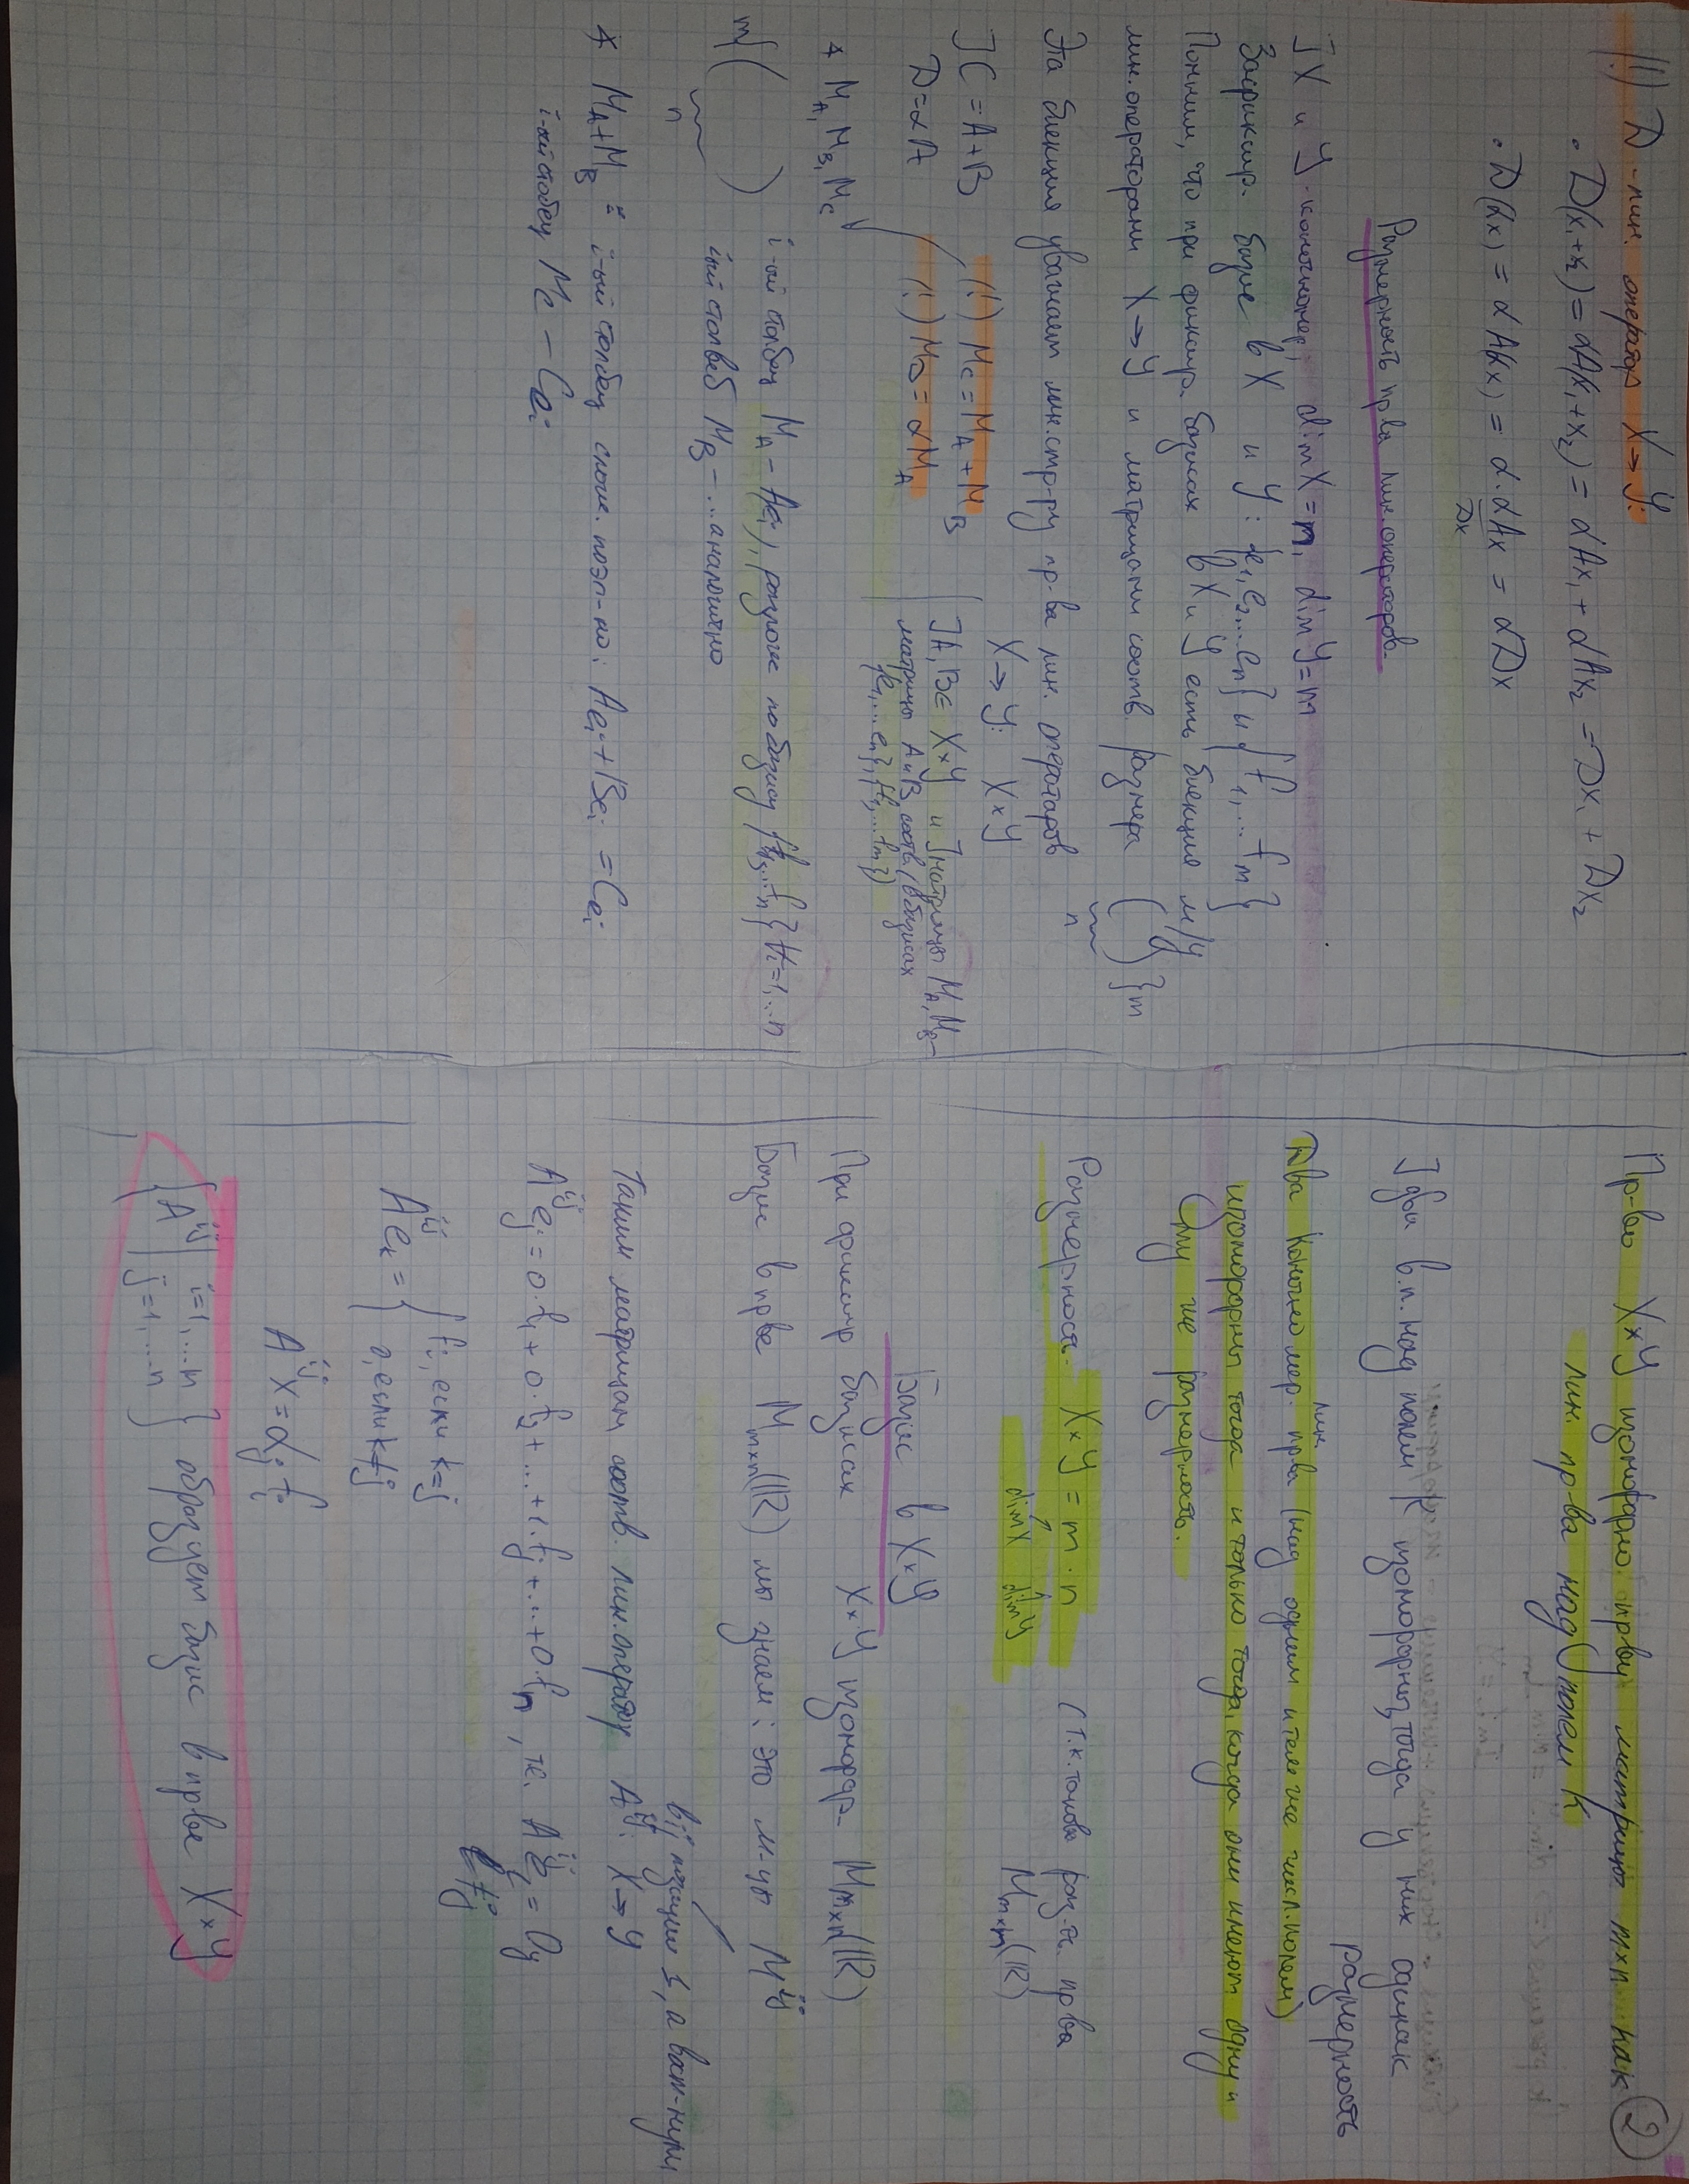 !!) D - лин. оператор X→Y:
• D(x₁+x₂) = αA(x₁+x₂) = αAx₁ + αAx₂ = Dx₁ + Dx₂
• D(αx) = αA(αx) = α·αAx = αDx
Dx
Размерность пр-ва лин. операторов.
] X и Y - конечномер, dim X = n, dim Y = m
Зафиксир. базис в X и Y: {e₁, e₂...en} и {f₁,...fm}
Помним, что при фиксир. базисах в X и Y есть биекция м/у
лин. операторами X→Y и матрицами соотв. размера ( ) }m
n
Эта биекция уважает лин. стр-ру пр-ва лин. операторов
X→Y: X×Y
] C = A+B (!) Mc = MA + MB
D = αA (!) MD = αMA
] A, B ∈ X×Y и ] матрицы MA, MB -
матрицы A и B соотв. (в базисах
{e₁,...en}, {f₁,...fm})
∗ MA, MB, Mc
m{( )
n
i-ый столбец MA - Aei, разлож по базису {f₁,...fn} ∀i=1,...n
i-ый столбец MB - ... аналогично
∗ MA+MB = i-ый столбец слож. поэл-но: Aei + Bei = Cei
i-ый столбец Mc - Cei
2
Пр-во X×Y изоморфно пр-ву матриц m×n как
лин. пр-ва над полем K
] два в.п. над полем K изоморфны, тогда у них одинак
размерность
Два конечномер. лин. пр-ва (над одним и тем же числ. полем)
изоморфны тогда и только тогда, когда они имеют одну и
ту же размерность.
Размерность X×Y = m·n (т.к. такова раз-ть пр-ва
dim X dim Y Mm×n(R)
Базис в X×Y
При фиксир базисах X×Y изоморф- Mm×n(R)
Базис в пр-ве Mm×n(R) мы знаем: это м-цы Mⁱʲ
в ij позиции 1, а в ост-нули
Таким матрицам соотв. лин. оператор Aⁱʲ: X→Y
Aⁱʲej = 0·f₁ + 0·f₂ + ... + 1·fi + ... + 0·fm, т.е. Aⁱʲeℓ = 0y
ℓ≠j
Aⁱʲek = { fi, если k=j
0, если k≠j
Aⁱʲx = αj fi
{Aⁱʲ | i=1,...n
j=1,...n} образует базис в пр-ве X×Y